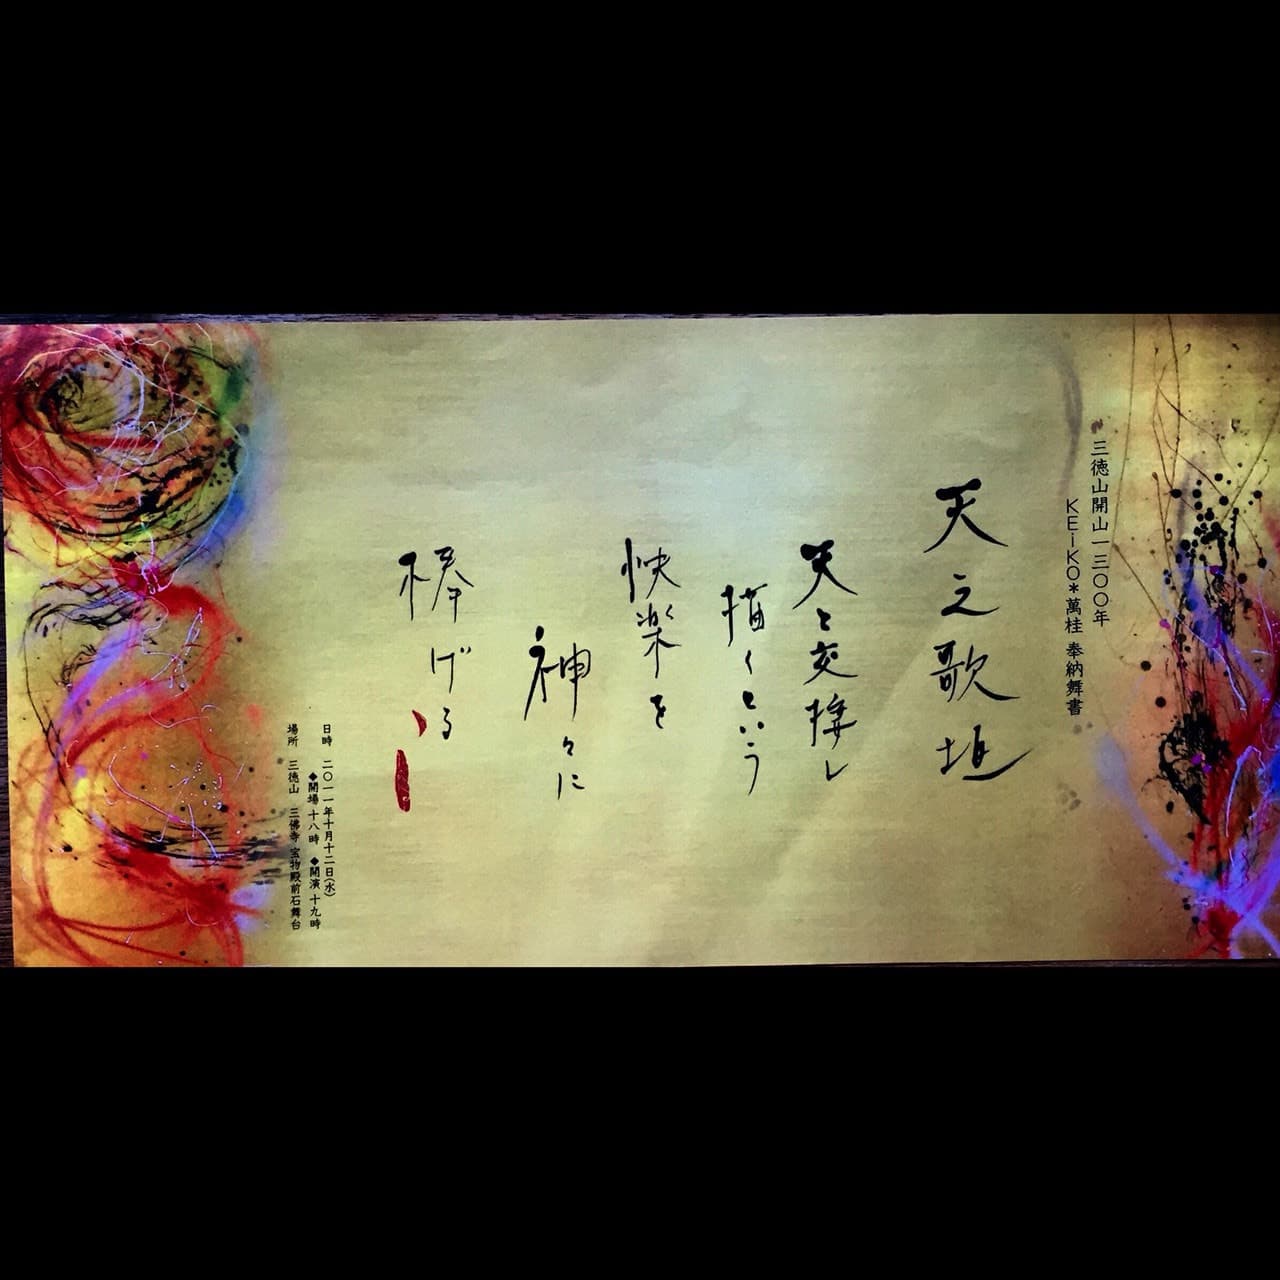 三徳山開山一三〇〇年
KEiKO*萬桂 奉納舞書
天之歌垣
天と交接し
描くという
快楽を
神々に
捧げる
日時 二〇一一年十月十二日(水)
◆開場 十八時 ◆開演 十九時
場所 三徳山 三佛寺 宝物殿前石舞台